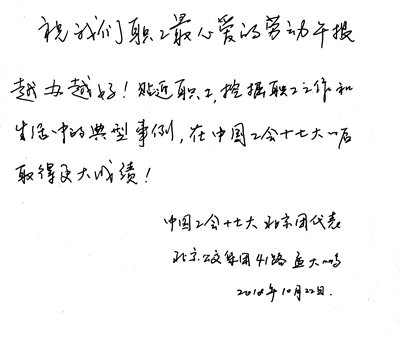 祝我们职工最心爱的劳动午报
越办越好！贴近职工,挖掘职工工作和
生活中的典型事例,在中国工会十七大以后
取得更大成绩！
中国工会十七大北京团代表
北京公交集团41路 孟大鸣
2018年10月22日.